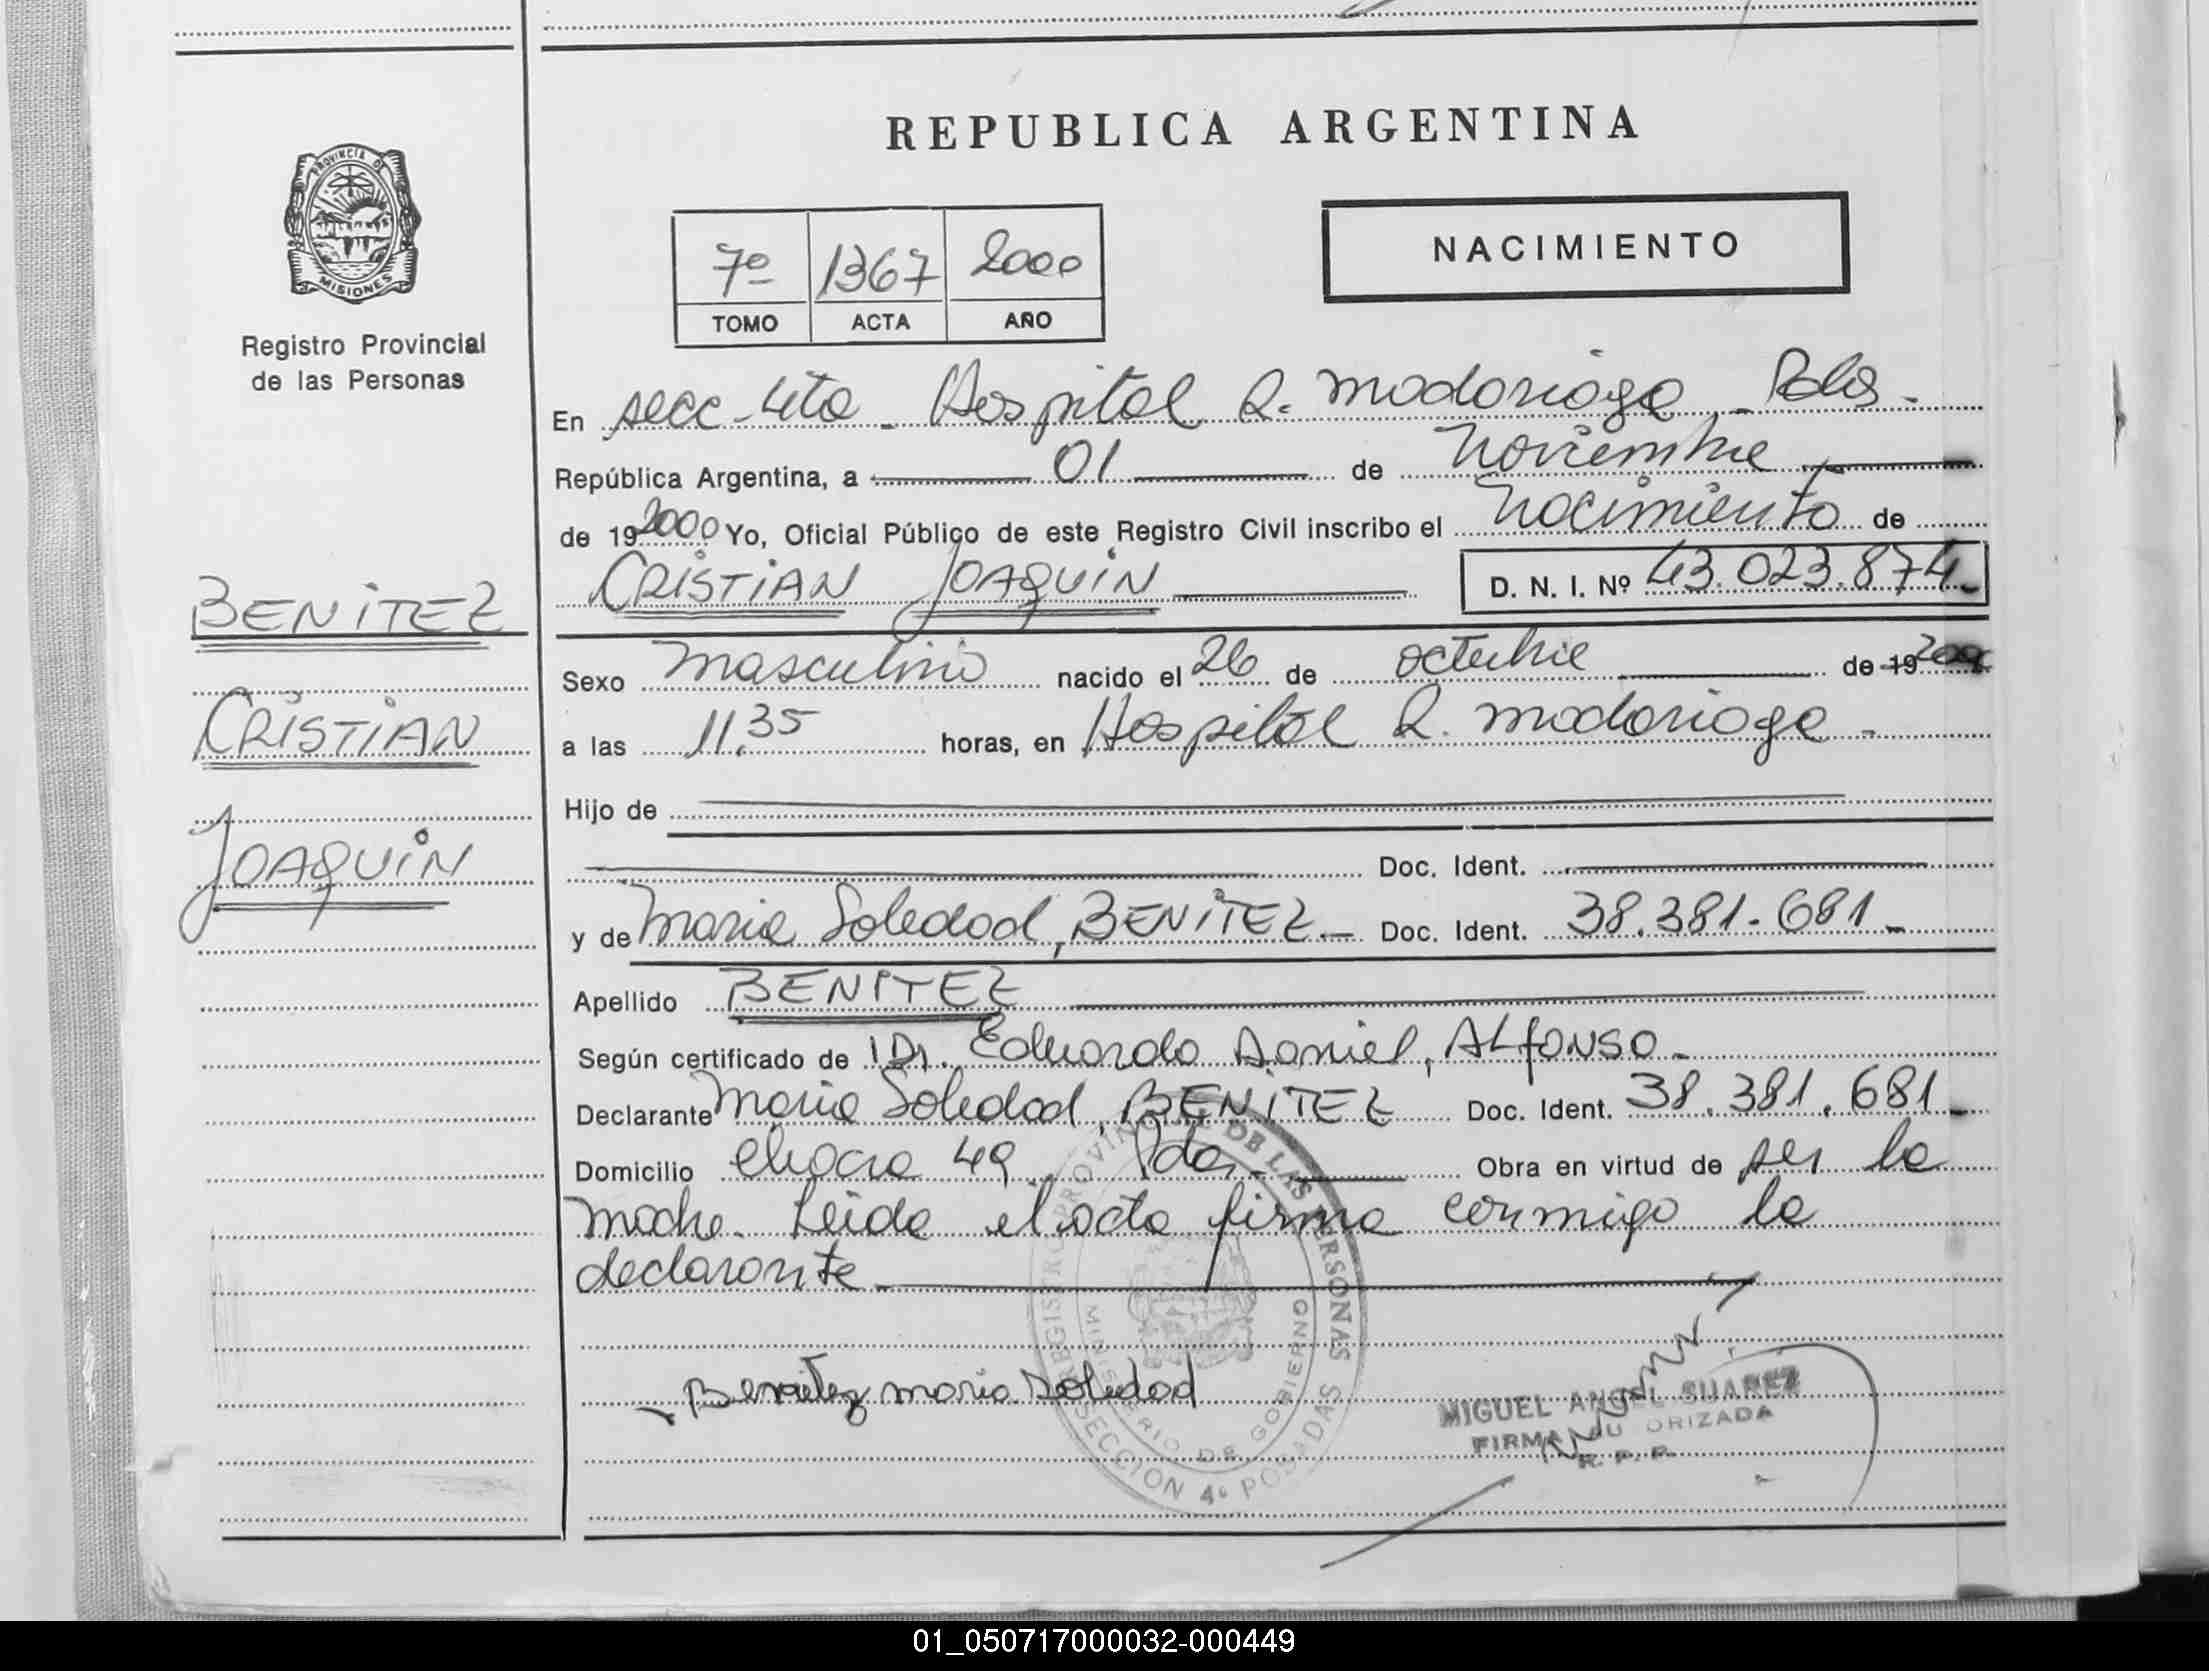 REPUBLICA ARGENTINA
PROVINCIA DE
MISIONES
Registro Provincial
de las Personas
7º 1367 2000
TOMO ACTA AÑO
NACIMIENTO
En secc - 4ta - Hospital R. Madariaga - Pdas -
República Argentina, a 01 de Noviembre
de 19 2000 Yo, Oficial Público de este Registro Civil inscribo el Nacimiento de
CRISTIAN JOAQUIN D. N. I. Nº 43.023.874-
BENITEZ
CRISTIAN
JOAQUIN
Sexo Masculino nacido el 26 de octubre de 19 2000
a las 11,35 horas, en Hospital R. Madariaga -
Hijo de
Doc. Ident.
y de Maria Soledad, BENITEZ - Doc. Ident. 38.381.681-
Apellido BENITEZ
Según certificado de Dr. Eduardo Daniel, ALFONSO -
Declarante Maria Soledad, BENITEZ Doc. Ident. 38.381.681-
Domicilio chacra 49 Pdas - Obra en virtud de ser la
madre. Leida el acta firma conmigo la
declarante
Benitez maria Soledad
REGISTRO PROVINCIAL DE LAS PERSONAS
MINISTERIO DE GOBIERNO
SECCION 4ª POSADAS
MIGUEL ANGEL SUAREZ
FIRMA AUTORIZADA
R. P. P.
01_050717000032-000449